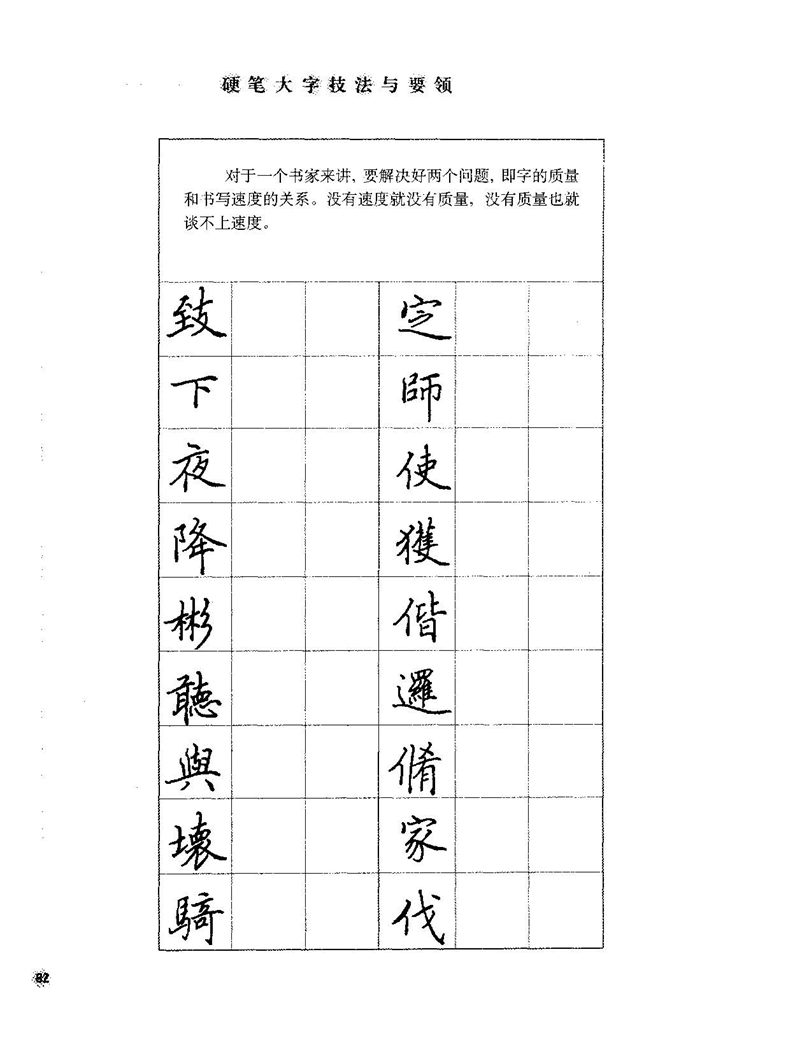 硬笔大字技法与要领
对于一个书家来讲，要解决好两个问题，即字的质量
和书写速度的关系。没有速度就没有质量，没有质量也就
谈不上速度。
致 定
下 師
夜 使
降 獲
彬 偕
聽 邏
與 脩
壞 家
騎 伐
82